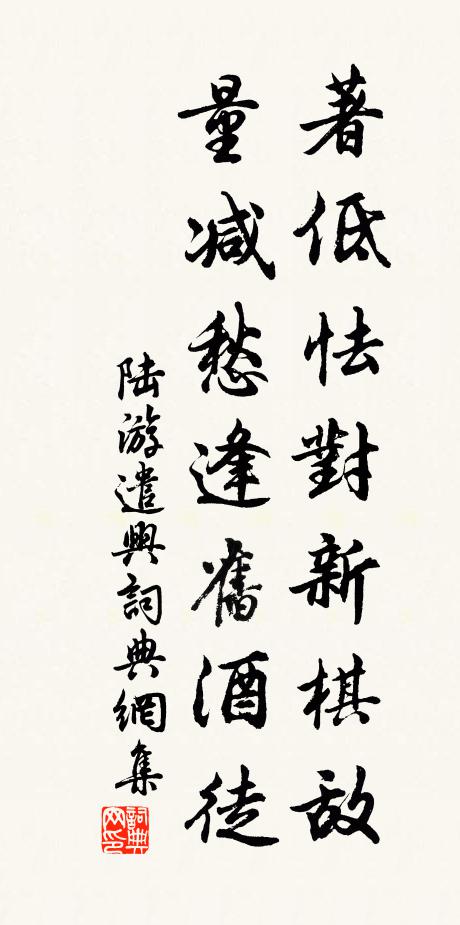 著低怯對新棋敵
量減愁逢舊酒徒
陆游遣興詞典網集
詞典网印